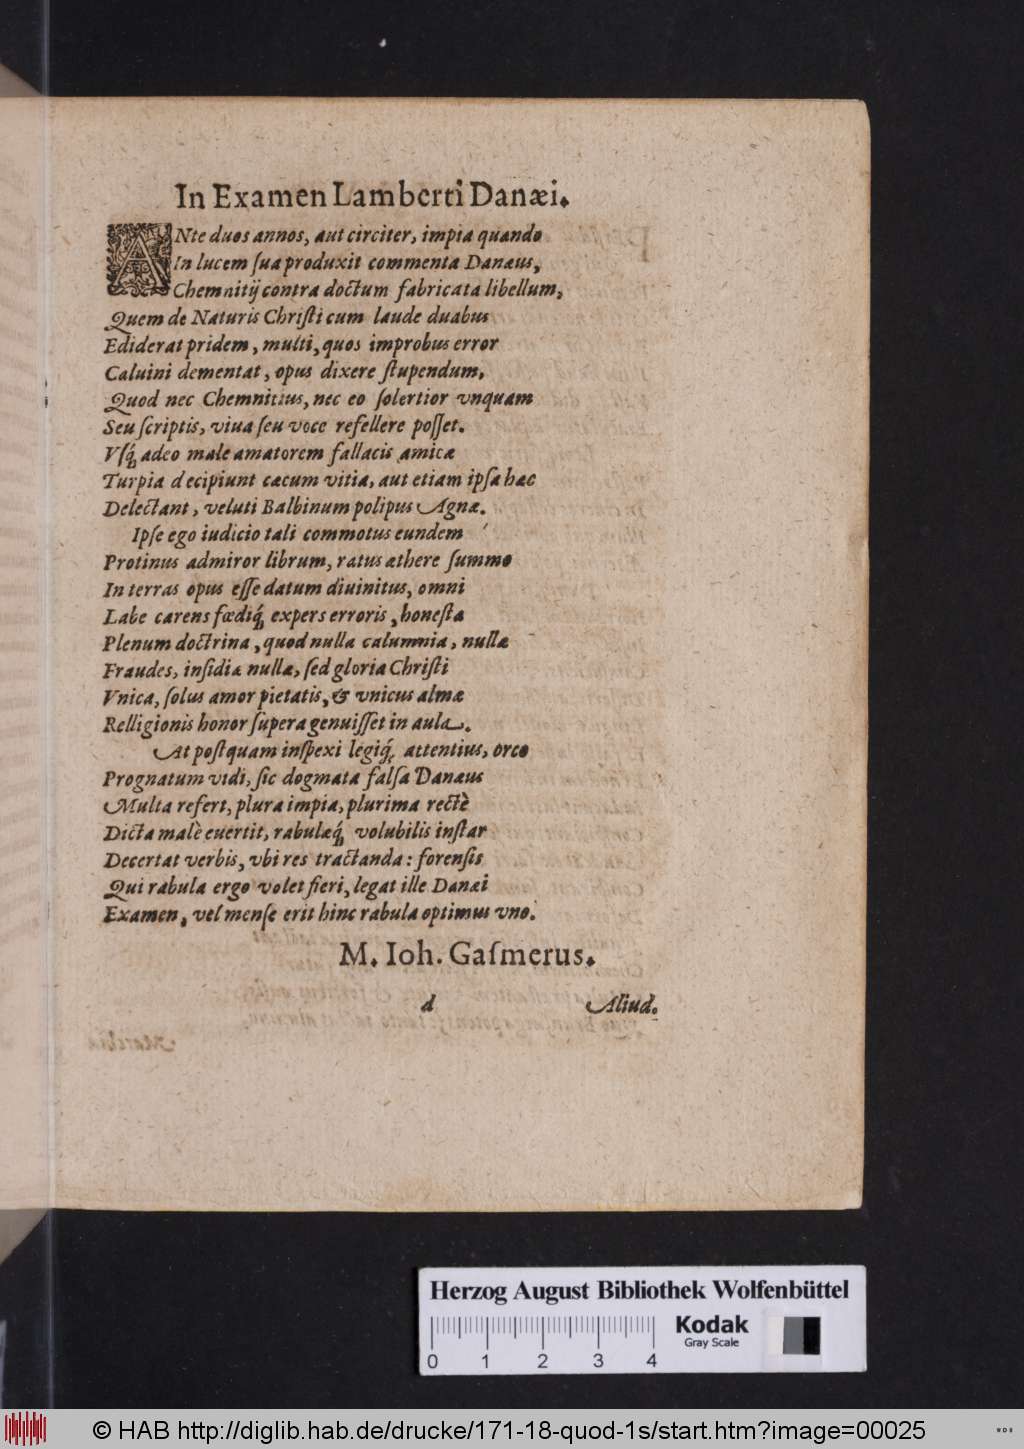 In Examen Lamberti Danæi.
ANte duos annos, aut circiter, impia quando
In lucem ſua produxit commenta Danæus,
Chemnitij contra doctum fabricata libellum,
Quem de Naturis Chriſti cum laude duabus
Ediderat pridem, multi, quos improbus error
Caluini dementat, opus dixere ſtupendum,
Quod nec Chemnitius, nec eo ſolertior vnquam
Seu ſcriptis, viua ſeu voce refellere poſſet.
Vſq́; adeo male amatorem fallacis amicæ
Turpia decipiunt cæcum vitia, aut etiam ipſa hæc
Delectant, veluti Balbinum polipus Agnæ.
Ipſe ego iudicio tali commotus eundem
Protinus admiror librum, ratus æthere ſummo
In terras opus eſſe datum diuinitus, omni
Labe carens fœdiq́; expers erroris, honeſta
Plenum doctrina, quod nulla calumnia, nullæ
Fraudes, inſidiæ nullæ, ſed gloria Chriſti
Vnica, ſolus amor pietatis, & vnicus almæ
Relligionis honor ſupera genuiſſet in aula.
At poſtquam inſpexi legiq́; attentius, orco
Prognatum vidi, ſic dogmata falſa Danæus
Multa refert, plura impia, plurima rectè
Dicta malè euertit, rabulæq́; volubilis inſtar
Decertat verbis, vbi res tractanda: forenſis
Qui rabula ergo volet fieri, legat ille Danæi
Examen, vel menſe erit hinc rabula optimus vno.
M. Ioh. Gaſmerus.
d Aliud.
Herzog August Bibliothek Wolfenbüttel
Kodak
Gray Scale
0 1 2 3 4
© HAB http://diglib.hab.de/drucke/171-18-quod-1s/start.htm?image=00025